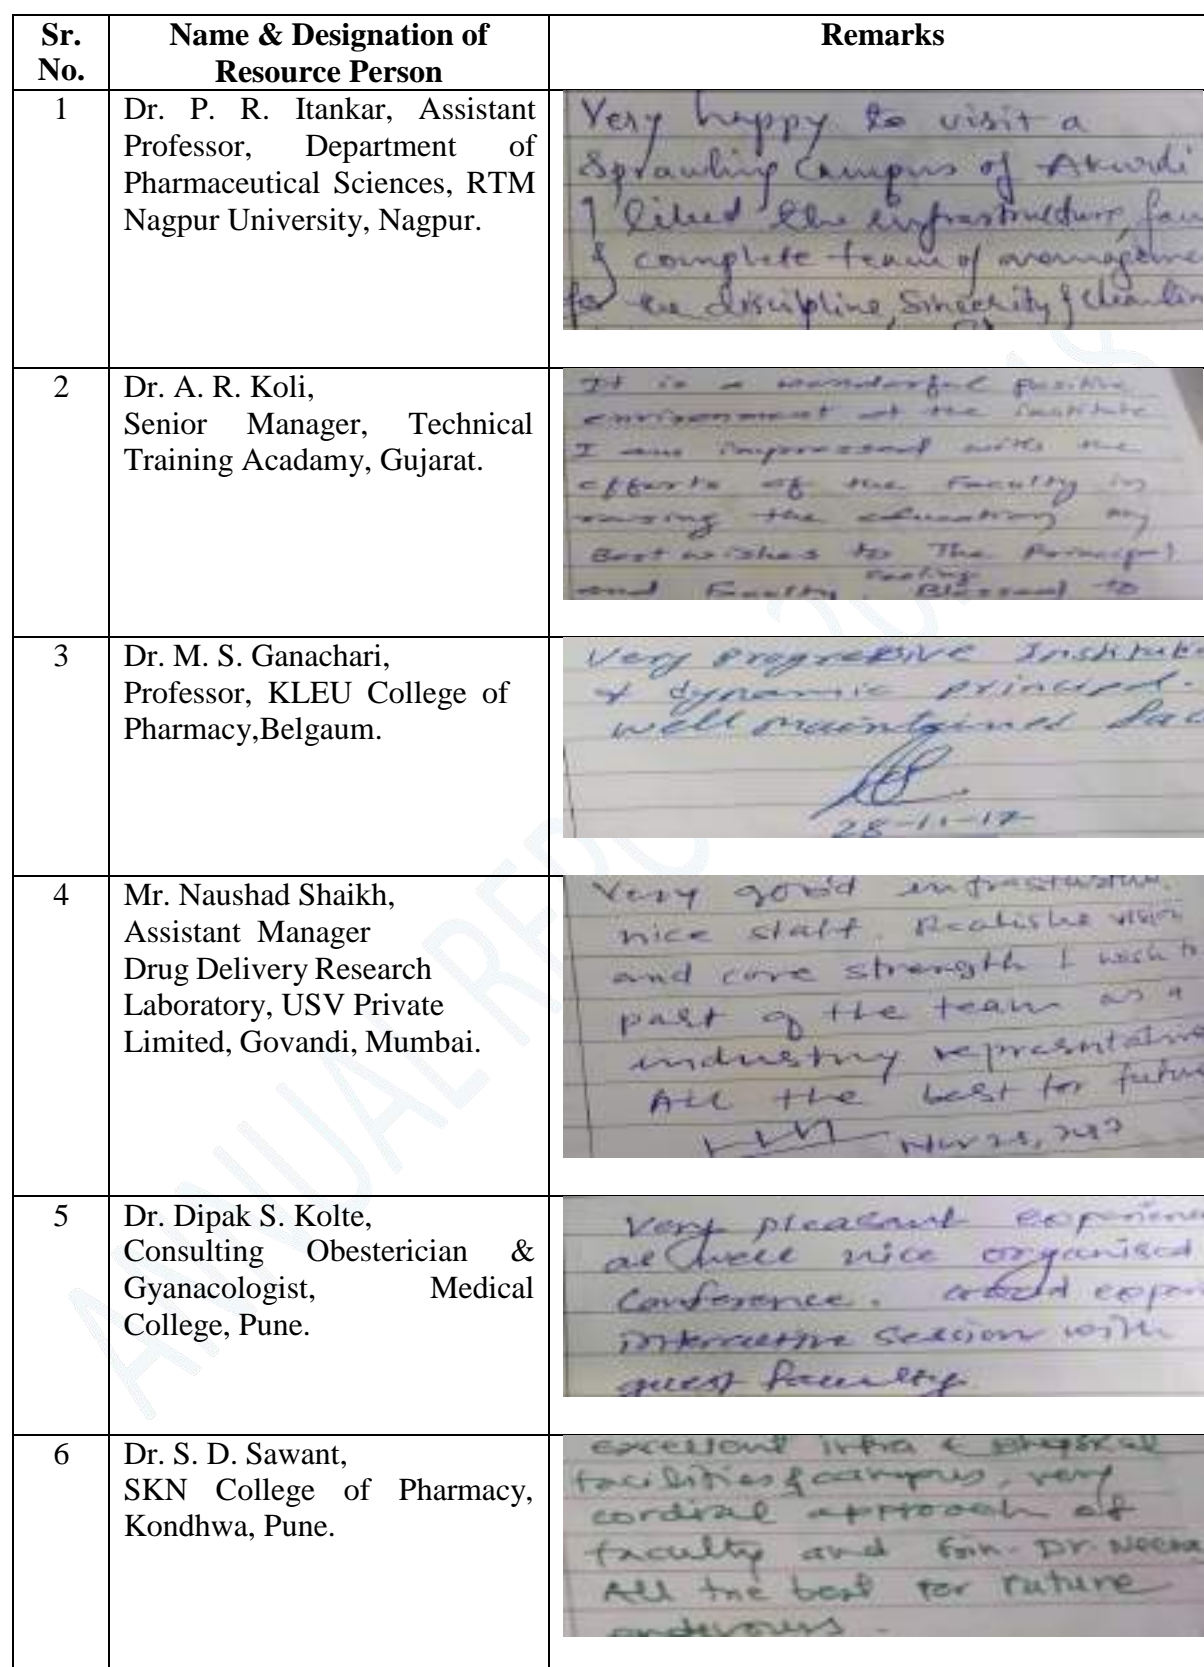 Sr. No.
Name & Designation of
Resource Person
Remarks
1
Dr. P. R. Itankar, Assistant
Professor, Department of
Pharmaceutical Sciences, RTM
Nagpur University, Nagpur.
Very happy to visit a
Sprawling Campus of Akurdi
I liked the infrastructure,
& complete team of
for the discipline, Sincerity &
2
Dr. A. R. Koli,
Senior Manager, Technical
Training Acadamy, Gujarat.
It is a wonderful positive
environment at the institute
I am impressed with the
efforts of the Faculty in
the education my
Best wishes to The Principal
and Faculty. Feeling Blessed to
3
Dr. M. S. Ganachari,
Professor, KLEU College of
Pharmacy,Belgaum.
Very progressive
& dynamic principal.
well maintained
28-11-17
4
Mr. Naushad Shaikh,
Assistant Manager
Drug Delivery Research
Laboratory, USV Private
Limited, Govandi, Mumbai.
Very good infrastructure.
nice staff. vision
and core strength I wish to
part of the team as a
industry
All the best for
5
Dr. Dipak S. Kolte,
Consulting Obesterician &
Gyanacologist, Medical
College, Pune.
Very pleasant
as well nice organised
Conference.
interactive session with
guest faculty.
6
Dr. S. D. Sawant,
SKN College of Pharmacy,
Kondhwa, Pune.
excellent infra & physical
facilities & campus, very
cordial approach of
faculty and Dr.
All the best for future
ANNUAL REPORT